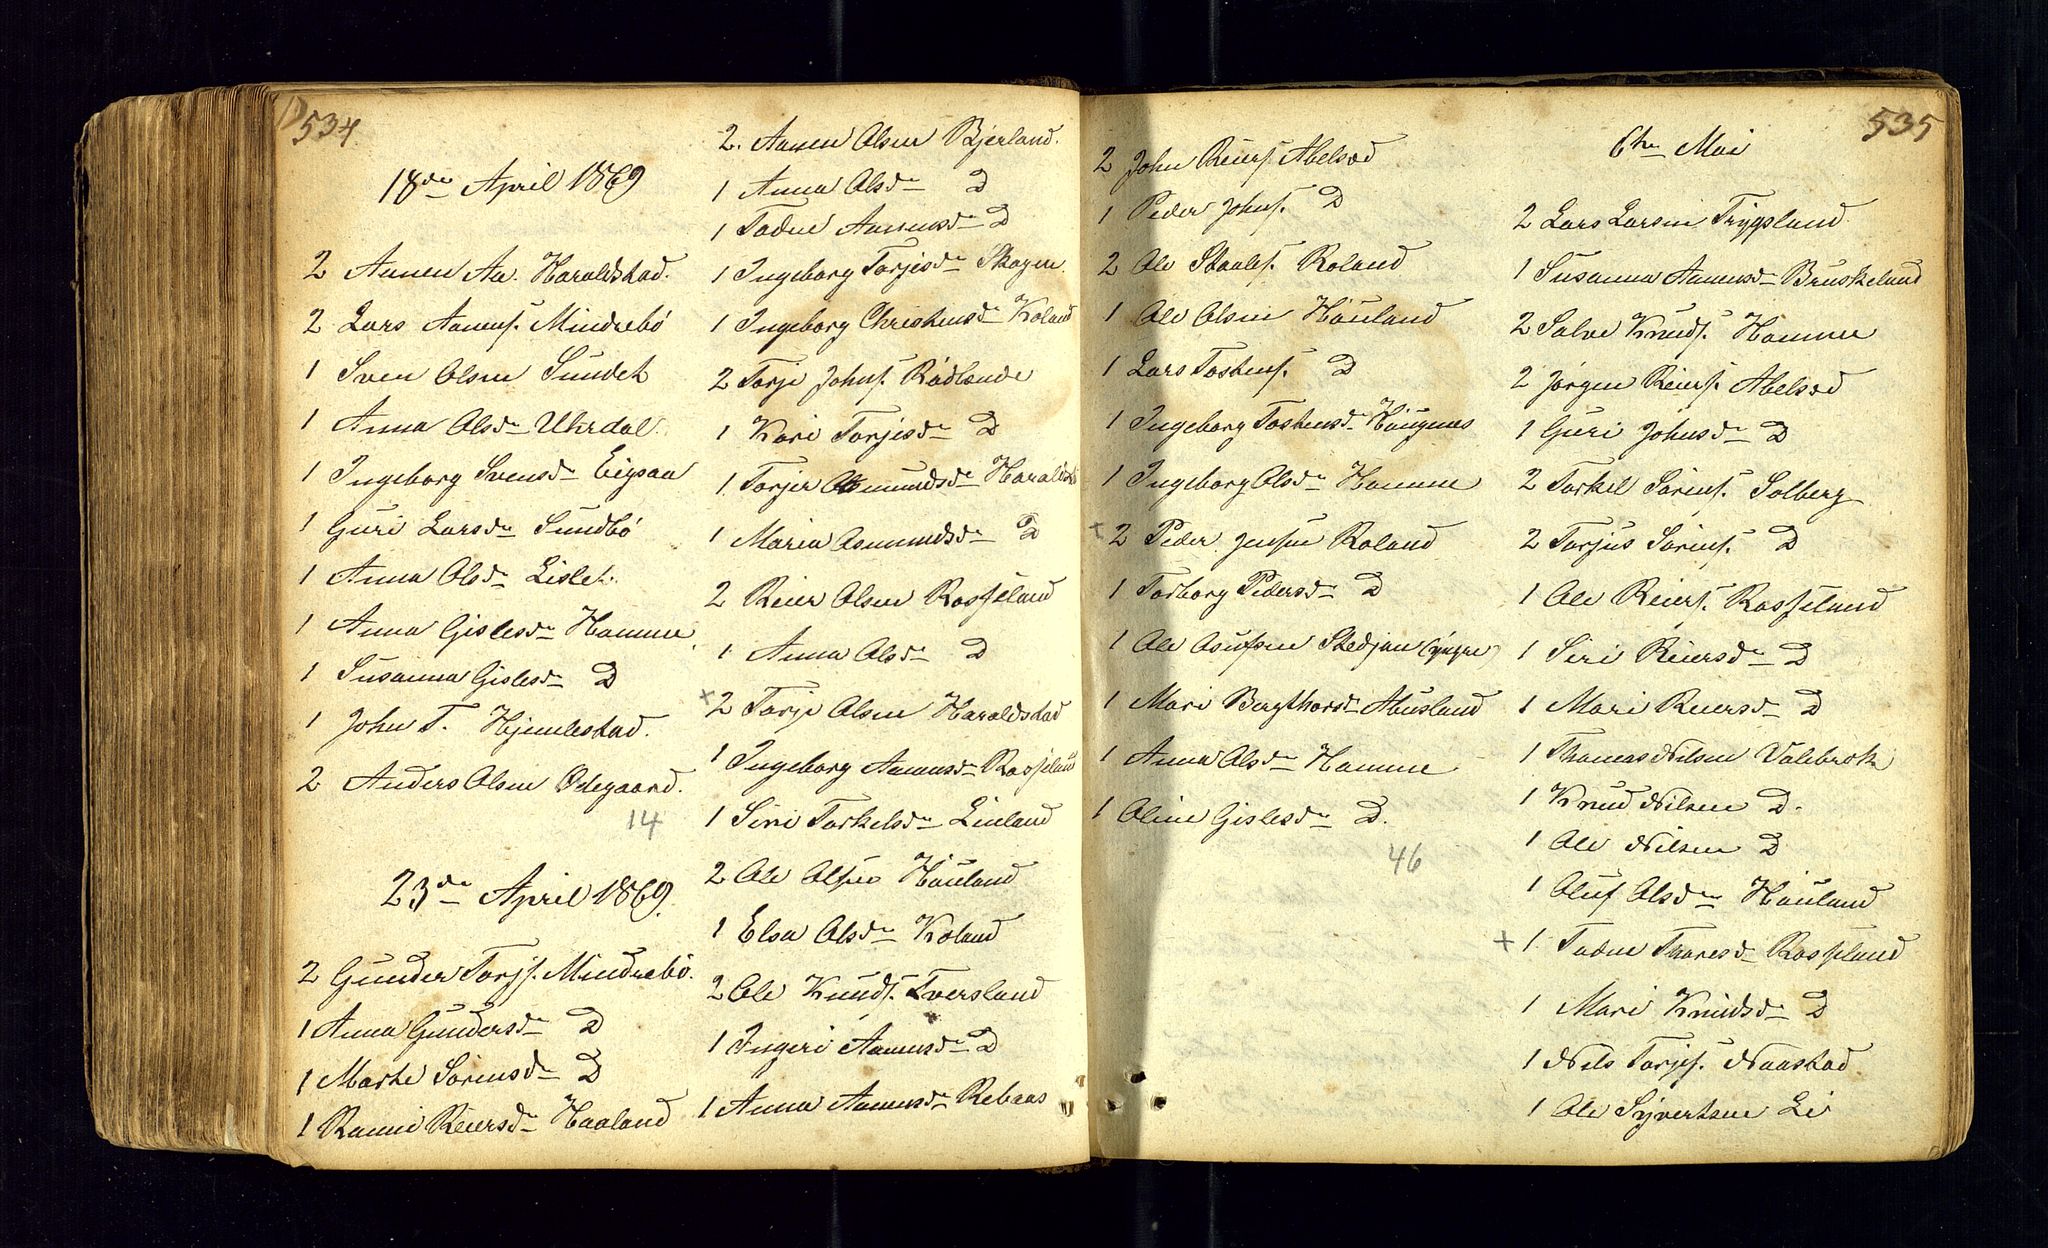 534
18de April 1869
2 Aanen Aa. Haraldstad.
2 Lars Aanens. Mindrebö
1 Sven Olsen Sundet
1 Anna Olsdr Uhrdal.
1 Ingeborg Svensdr Eigsaa
1 Guri Larsdr Sundbö
1 Anna Olsdr Lislet.
1 Anna Gislesdr Homme
1 Susanna Gislesdr D
1 John T. Hjemlestad.
2 Anders Olsen Ödegaard.
14
23de April 1869.
2 Gunder Torjs. Mindrebö.
1 Anna Gundersdr D
1 Marte Sörensdr D
1 Ranni Reiersdr Haaland
2. Aanen Olsen Bjerland.
1 Anna Olsdr D
1 Todne Aanensdr D
1 Ingeborg Torjisdr Skogen
1 Ingeborg Christensdr Koland
2 Torje Johns. Rödlande
1 Kari Torjisdr D
1. Torjer Asmundsdr
1 Maria Asmundsdr D
2 Reier Olsen Rosseland
1 Anna Olsdr D
+ 2 Torje Olsen Haraldstad
1 Ingeborg Aanensdr Rosseland
1 Siri Torkelsdr Linland
2 Ole Olsen Höuland
1 Elsa Olsdr Koland
2 Ole Knuds. Tversland
1 Ingeri Aanensdr D
1 Anna Aanensdr Rebaas
535
2 John Reiers. Abelsæd
1 Peder Johns. D
2 Ole Staales. Roland
1 Ole Olsen Höuland
1 Lars Tostens. D
1 Ingeborg Tostensdr Höugnæs
1 Ingeborg Olsdr Homme
+ 2 Peder Jensen Roland
1 Torborg Pedersdr D
1 Ole Asulfsen
1 Mari Bergthorsdr Abusland
1 Anna Olsdr Homme
1 Oline Gislesdr D.
46
6te Mai
2 Lars Larsen Trygsland
1 Susanna Aanensdr Bruskeland
2 Salve Knuds. Homme
2 Jörgen Reiers. Abelsæd
1 Guri Johnsdr D
2 Torkel Sörens. Solberg
2 Torjus Sörens. D
1 Ole Reiers. Rosseland
1 Siri Reiersdr D
1 Mari Reiersdr D
1 Thomas Nilsen Valebrok
1 Knud Nilsen D.
1 Ole Nilsen D
1 Oluf Olsdr Höuland
+ 1 Todne Tharesdr Rosseland
1 Mari Knudsdr D
1 Nils Torjes. Naastad
1 Ole Syvertsen Li